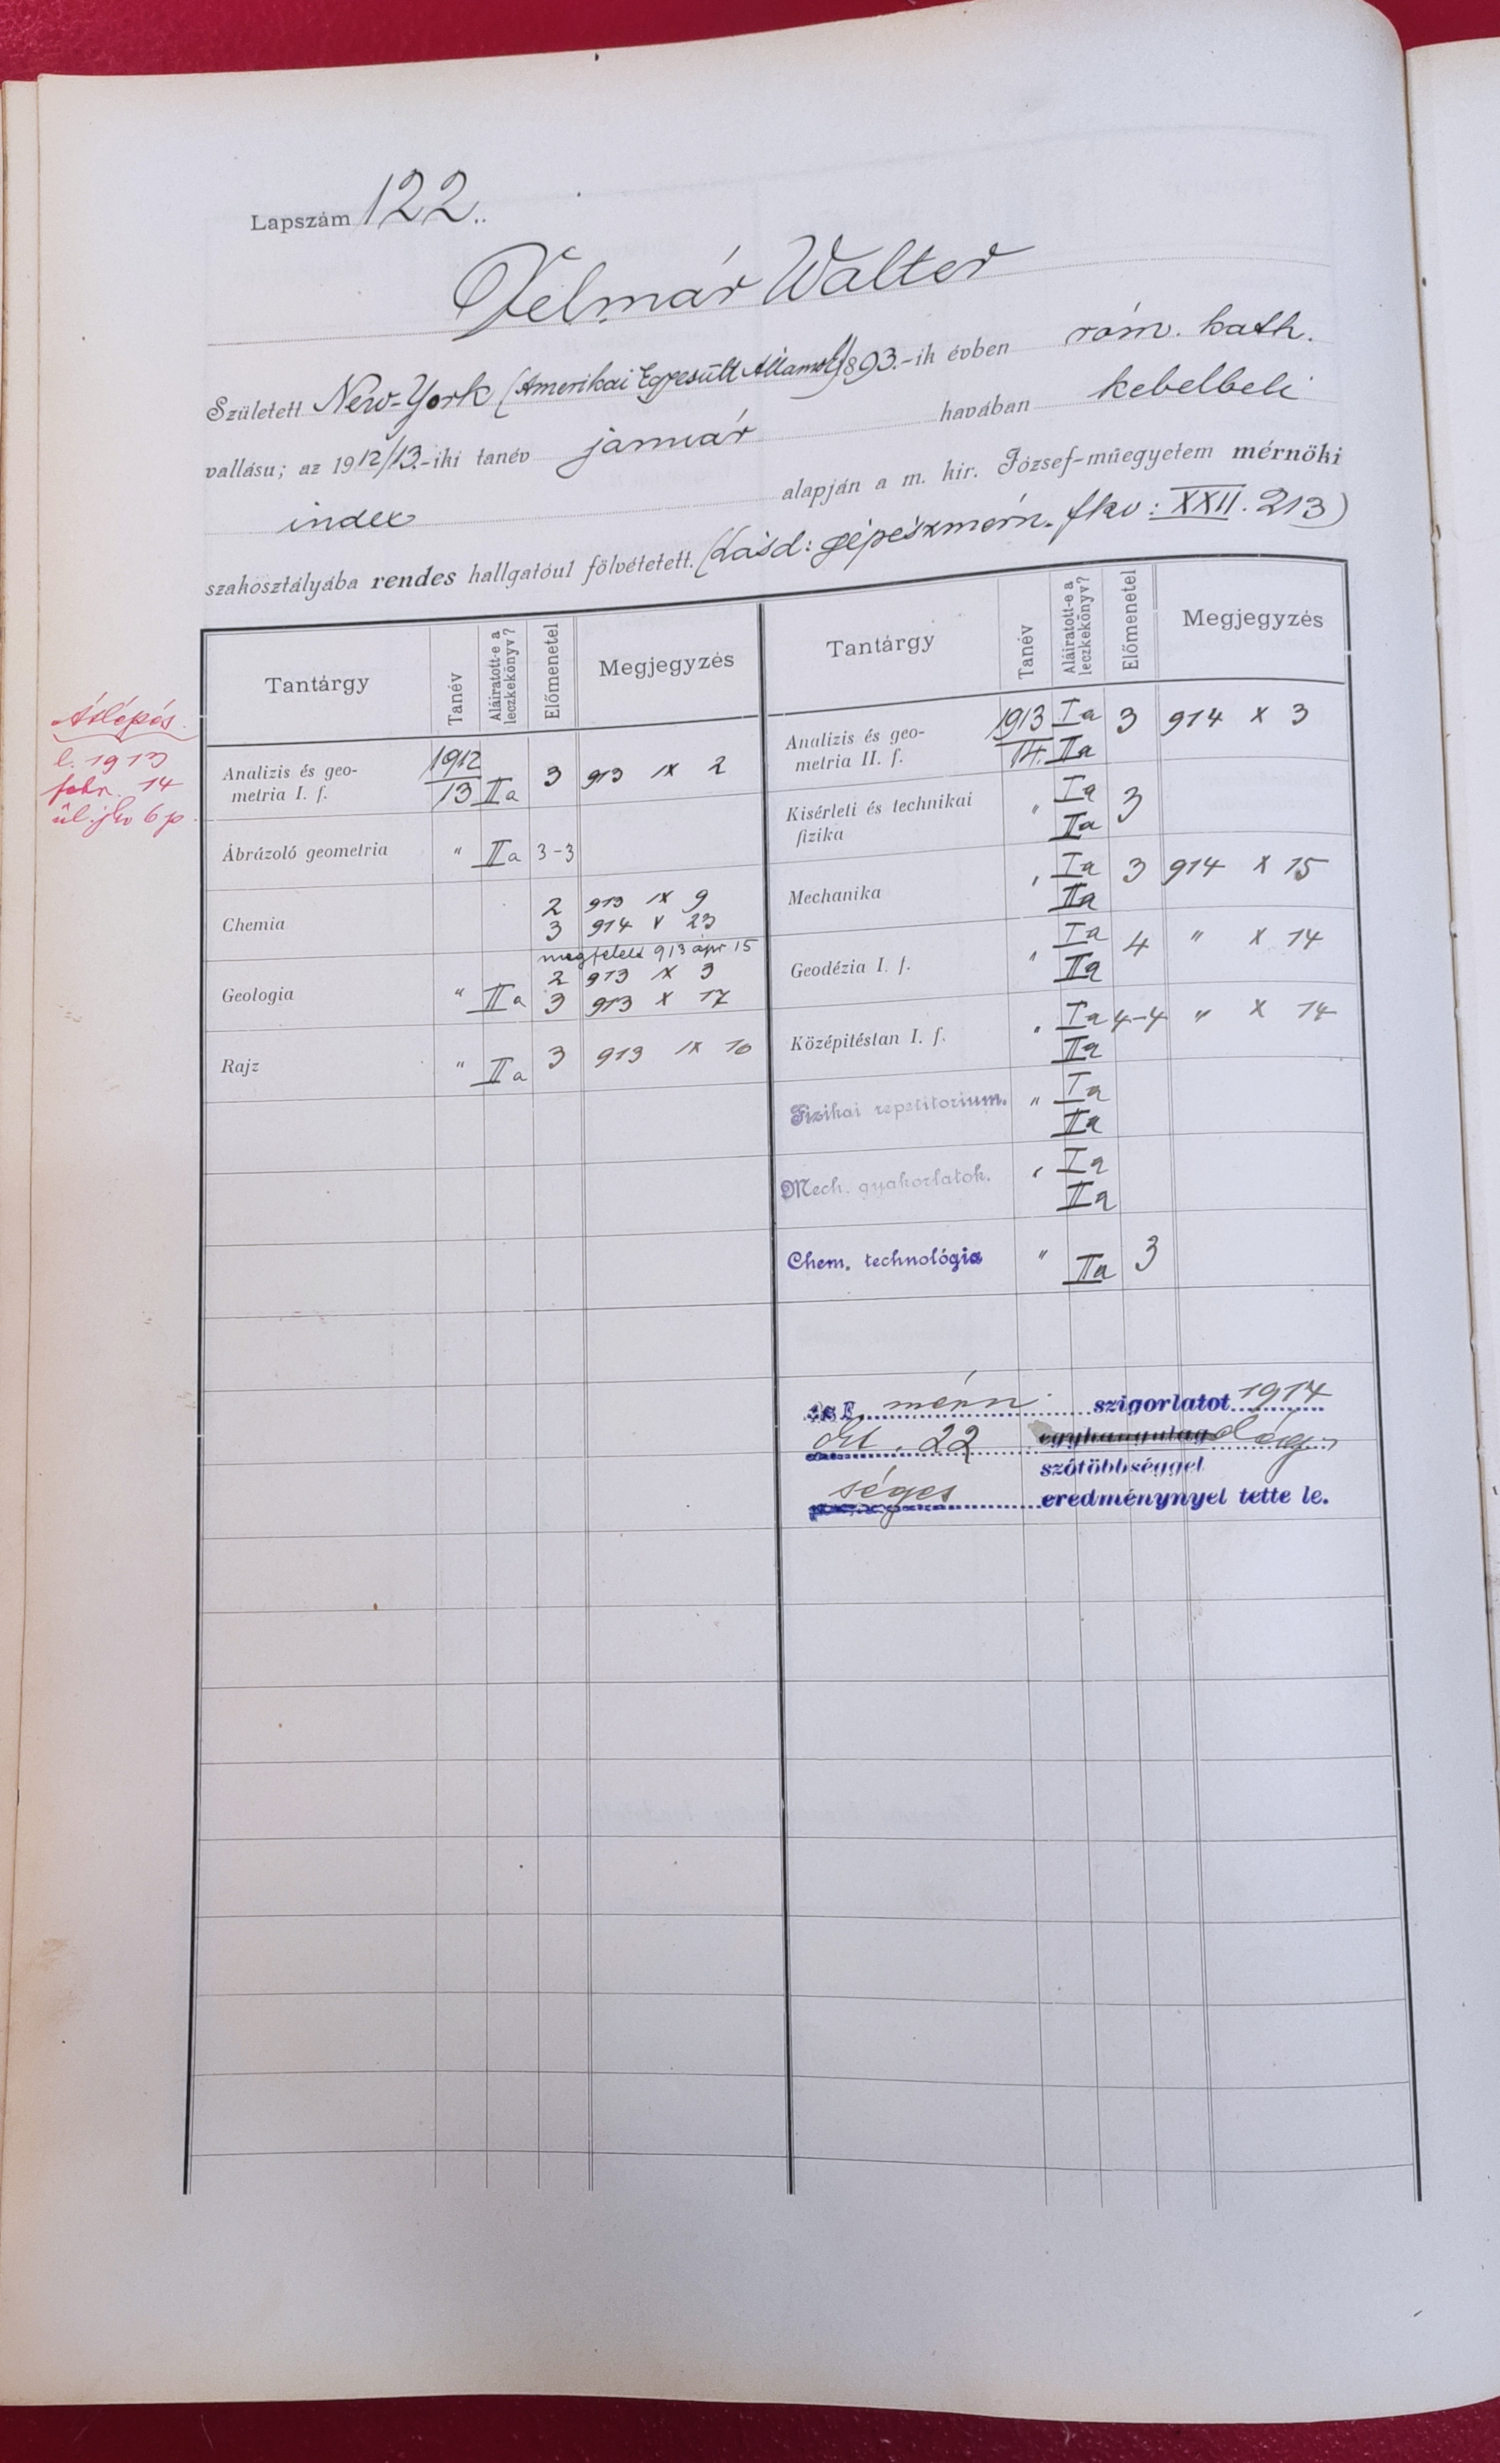 Lapszám 122.
Velmár Walter
Született New-York (Amerikai Egyesült Államok) 1893.-ik évben róm. kath.
vallásu; az 1912/13.-iki tanév január havában kebelbeli
index alapján a m. kir. József-műegyetem mérnöki
szakosztályába rendes hallgatóul fölvétetett. (Lásd: gépészmérn. fkv: XXII. 213)
Átlépés.
l. 1913
febr. 14
ül. jkv 6 p
Tantárgy Tanév Aláiratott-e a leczkekönyv? Előmenetel Megjegyzés
Analizis és geo-
metria I. f. 1912/13 IIa 3 913 IX 2
Ábrázoló geometria " IIa 3-3
Chemia 2 913 IX 9
3 914 V 23
megfelelt 913 ápr 15
2 913 IX 3
Geologia " IIa 3 913 X 17
Rajz " IIa 3 913 IX 10
Tantárgy Tanév Aláiratott-e a leczkekönyv? Előmenetel Megjegyzés
Analizis és geo- 1913 Ia 3 914 X 3
metria II. f. 14. IIa
Kisérleti és technikai " Ia 3
fizika IIa
Mechanika " Ia 3 914 X 15
IIa
Geodézia I. f. " Ia 4 " X 14
IIa
Középitéstan I. f. " Ia 4-4 " X 14
IIa
Fizikai repetitorium. " Ia
IIa
Mech. gyakorlatok. " Ia
IIa
Chem. technológia " IIa 3
mérn. szigorlatot 1914
Okt. 22 egyhangulag elég-
szótöbbséggel
séges eredménynyel tette le.